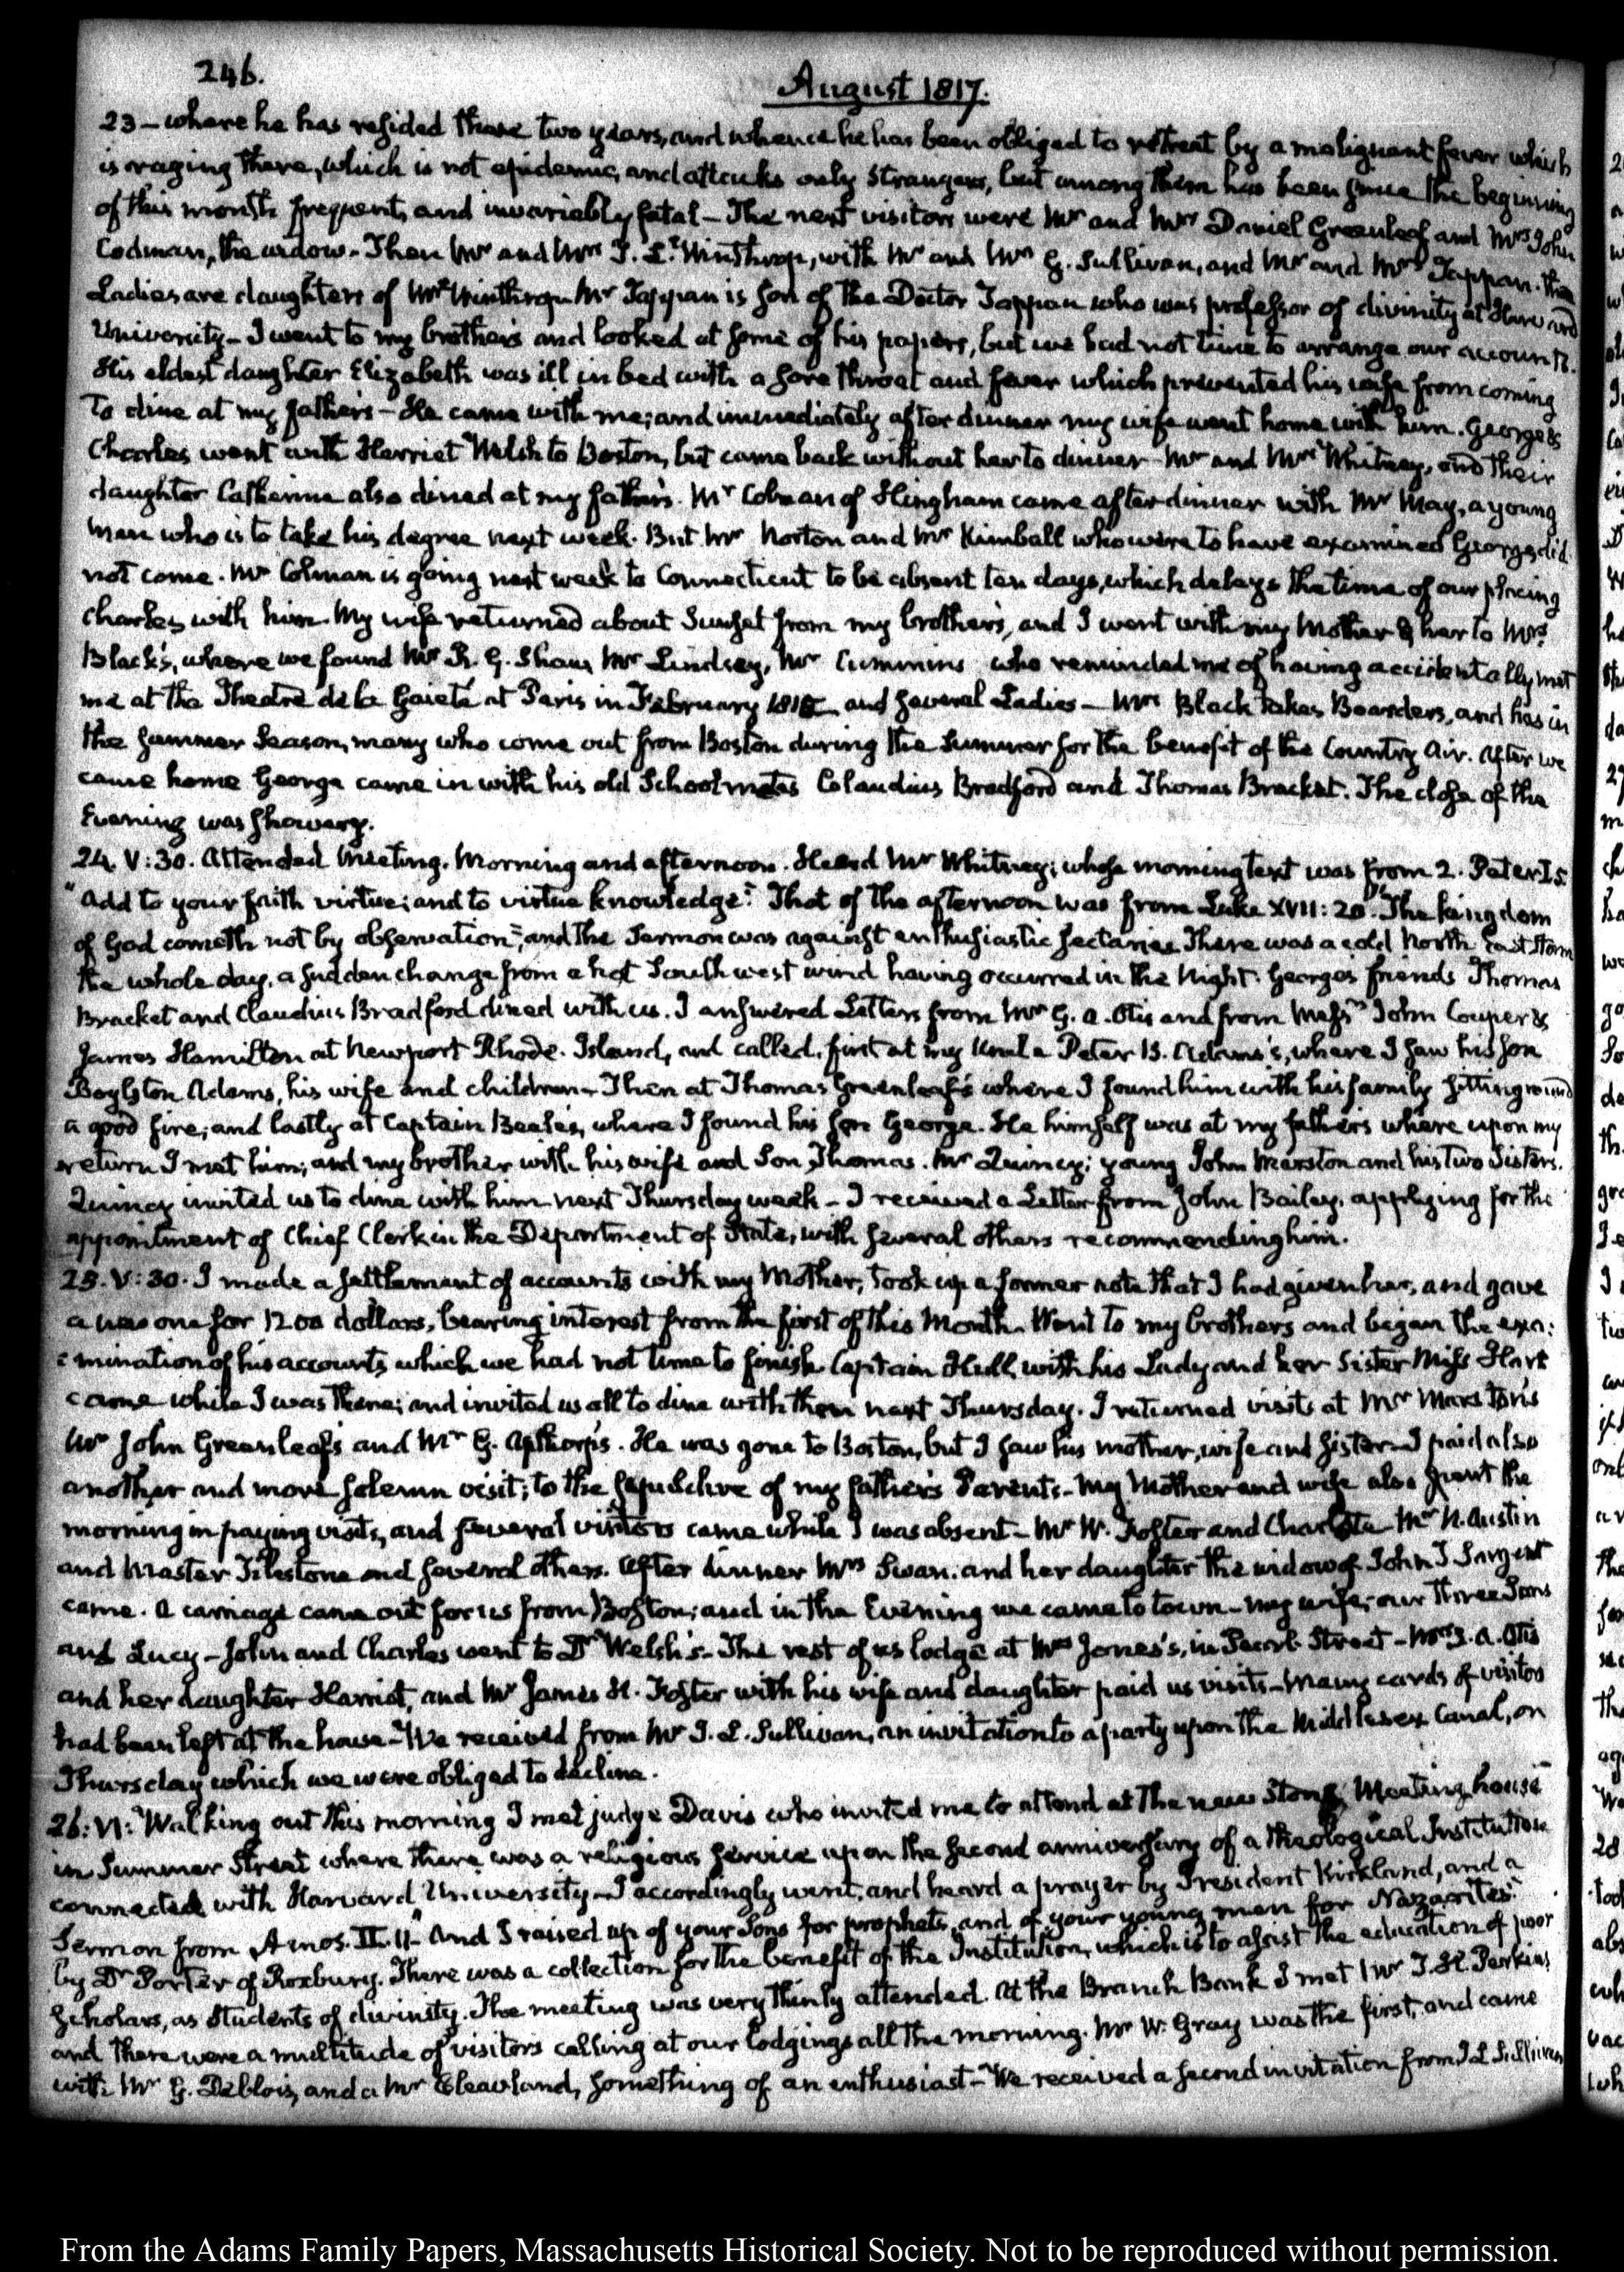 246.
August 1817.
23 – where he has resided these two years, and whence he has been obliged to retreat by a malignant fever which
is raging there, which is not epidemic, and attacks only strangers, but among them has been since the beginning
of this month frequent, and invariably fatal – The next visitors were Mr and Mrs Daniel Greenleaf and Mrs John
Codman, the widow. Then Mr and Mrs T. L. Winthrop, with Mr and Mrs G. Sullivan, and Mr and Mrs Tappan. the
Ladies are daughters of Mr Winthrop. Mr Tappan is son of the Doctor Tappan who was professor of divinity at Harvard
University – I went to my brother's and looked at some of his papers, but we had not time to arrange our accounts.
His eldest daughter Elizabeth was ill in bed with a sore throat and fever which prevented his wife from coming
to dine at my father's – He came with me; and immediately after dinner my wife went home with him. George &
Charles went with Harriet Welsh to Boston, but came back without her to dinner – Mr and Mrs Whitney, and their
daughter Catherine also dined at my father's. Mr Colman of Hingham came after dinner with Mr May, a young
man who is to take his degree next week. But Mr Norton and Mr Kimball who were to have examined George, did
not come. Mr Colman is going next week to Connecticut to be absent ten days, which delays the time of our placing
Charles with him. My wife returned about Sunset from my brother's, and I went with my Mother & her to Mrs
Black's, where we found Mr R. G. Shaw, Mr Lindsey, Mr Cummins who reminded me of having accidentally met
me at the Theatre de la Gaieté at Paris in February 1815 and several Ladies – Mrs Black takes Boarders, and has in
the summer Season, many who come out from Boston during the Summer for the benefit of the Country Air. After we
came home George came in with his old Schoolmates Claudius Bradford and Thomas Bracket. The close of the
Evening was showery.
24. V:30. Attended Meeting. Morning and afternoon. Heard Mr Whitney; whose morning text was from 2. Peter I.5
"Add to your faith virtue; and to virtue knowledge." That of the afternoon was from Luke XVII:20. "The kingdom
of God cometh not by observation", and the Sermon was against enthusiastic sectaries. There was a cold North East storm
the whole day, a sudden change from a hot South west wind having occurred in the Night. George's friends Thomas
Bracket and Claudius Bradford dined with us. I answered Letters from Mr G. A. Otis and from Messrs John Couper &
James Hamilton at Newport Rhode-Island, and called, first at my Uncle Peter B. Adams's, where I saw his son
Boylston Adams, his wife and children – Then at Thomas Greenleaf's where I found him with his family sitting round
a good fire; and lastly at Captain Beale's, where I found his son George. He himself was at my father's where upon my
return I met him; and my brother with his wife and Son Thomas. Mr Quincy; young John Marston and his two Sisters.
Quincy invited us to dine with him next Thursday week – I received a Letter from John Bailey, applying for the
appointment of Chief Clerk in the Department of State, with several others recommending him.
25. V:30. I made a settlement of accounts with my Mother; took up a former note that I had given her, and gave
a new one for 1200 dollars, bearing interest from the first of this Month. Went to my brother's and began the exa:
:mination of his accounts which we had not time to finish. Captain Hull, with his Lady and her Sister Miss Hart
came while I was there; and invited us all to dine with them next Thursday. I returned visits at Mr Marston's
Mr John Greenleaf's and Mr G. Apthorp's. He was gone to Boston, but I saw his mother, wife and sister – I paid also
another and more solemn visit; to the sepulchre of my father's Parents – My Mother and wife also spent the
morning in paying visits, and several visitors came while I was absent – Mr W. Foster and Charlotte Mr N. Austin
and Master Tileston and several others. After dinner Mrs Swan, and her daughter the widow of John T Sargent
came. A carriage came out for us from Boston; and in the Evening we came to town – my wife, our three Sons
and Lucy – John and Charles went to Dr Welsh's – The rest of us lodge at Mrs Jones's, in Pearl Street – Mrs S. A. Otis
and her daughter Harriet, and Mr James H. Foster with his wife and daughter paid us visits – Many cards of visitors
had been left at the house – We received from Mr J. L. Sullivan, an invitation to a party upon the Middlesex Canal, on
Thursday which we were obliged to decline.
26: VI: Walking out this morning I met judge Davis who invited me to attend at the new Stone Meeting house
in Summer Street where there was a religious service upon the second anniversary of a theological Institution
connected with Harvard University – I accordingly went, and heard a prayer by President Kirkland, and a
Sermon from Amos. II. 11 "And I raised up of your Sons for prophets, and of your young men for Nazarites."
by Dr Porter of Roxbury. There was a collection for the benefit of the Institution, which is to assist the education of poor
Scholars, as Students of divinity. The meeting was very thinly attended. At the Branch Bank I met Mr T. H. Perkins
and there were a multitude of visitors calling at our lodgings all the morning. Mr W. Gray was the first, and came
with Mr G. Deblois, and a Mr Cleaveland, something of an enthusiast – We received a second invitation from J L Sullivan
From the Adams Family Papers, Massachusetts Historical Society. Not to be reproduced without permission.